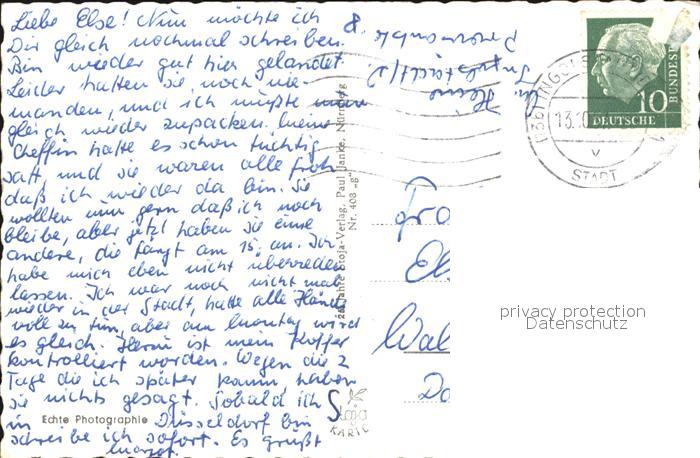 Liebe Else! Nun möchte ich
Dir gleich nochmal schreiben.
Bin wieder gut hier gelandet.
Leider hatten sie noch nie-
manden, und ich mußte
gleich wieder zupacken. Meine
Cheffin hatte es schon tüchtig
satt und sie waren alle froh
daß ich wieder da bin. Sie
wollten nun gern daß ich noch
bleibe, aber jetzt haben sie eine
andere, die fängt am 15. an. Ich
habe mich eben nicht überreden
lassen. Ich war noch nicht mal
wieder in der Stadt, hatte alle Hände
voll zu tun, aber am Montag wird
es gleich. Herm ist mein Koffer
kontrolliert worden. Wegen die 2
Tage die ich später kam, haben
sie nichts gesagt. Sobald ich
in Düsseldorf bin
schreibe ich sofort. Es grüßt
Margot
Echte Photographie
Stoja-Verlag, Paul Janke, Nürnberg
Nr. 408 „g"
Stoja
KARTE
INGOLSTADT
13.10
V
STADT
10
DEUTSCHE
BUNDESP
Fra
El
Wal
Do
privacy protection
Datenschutz